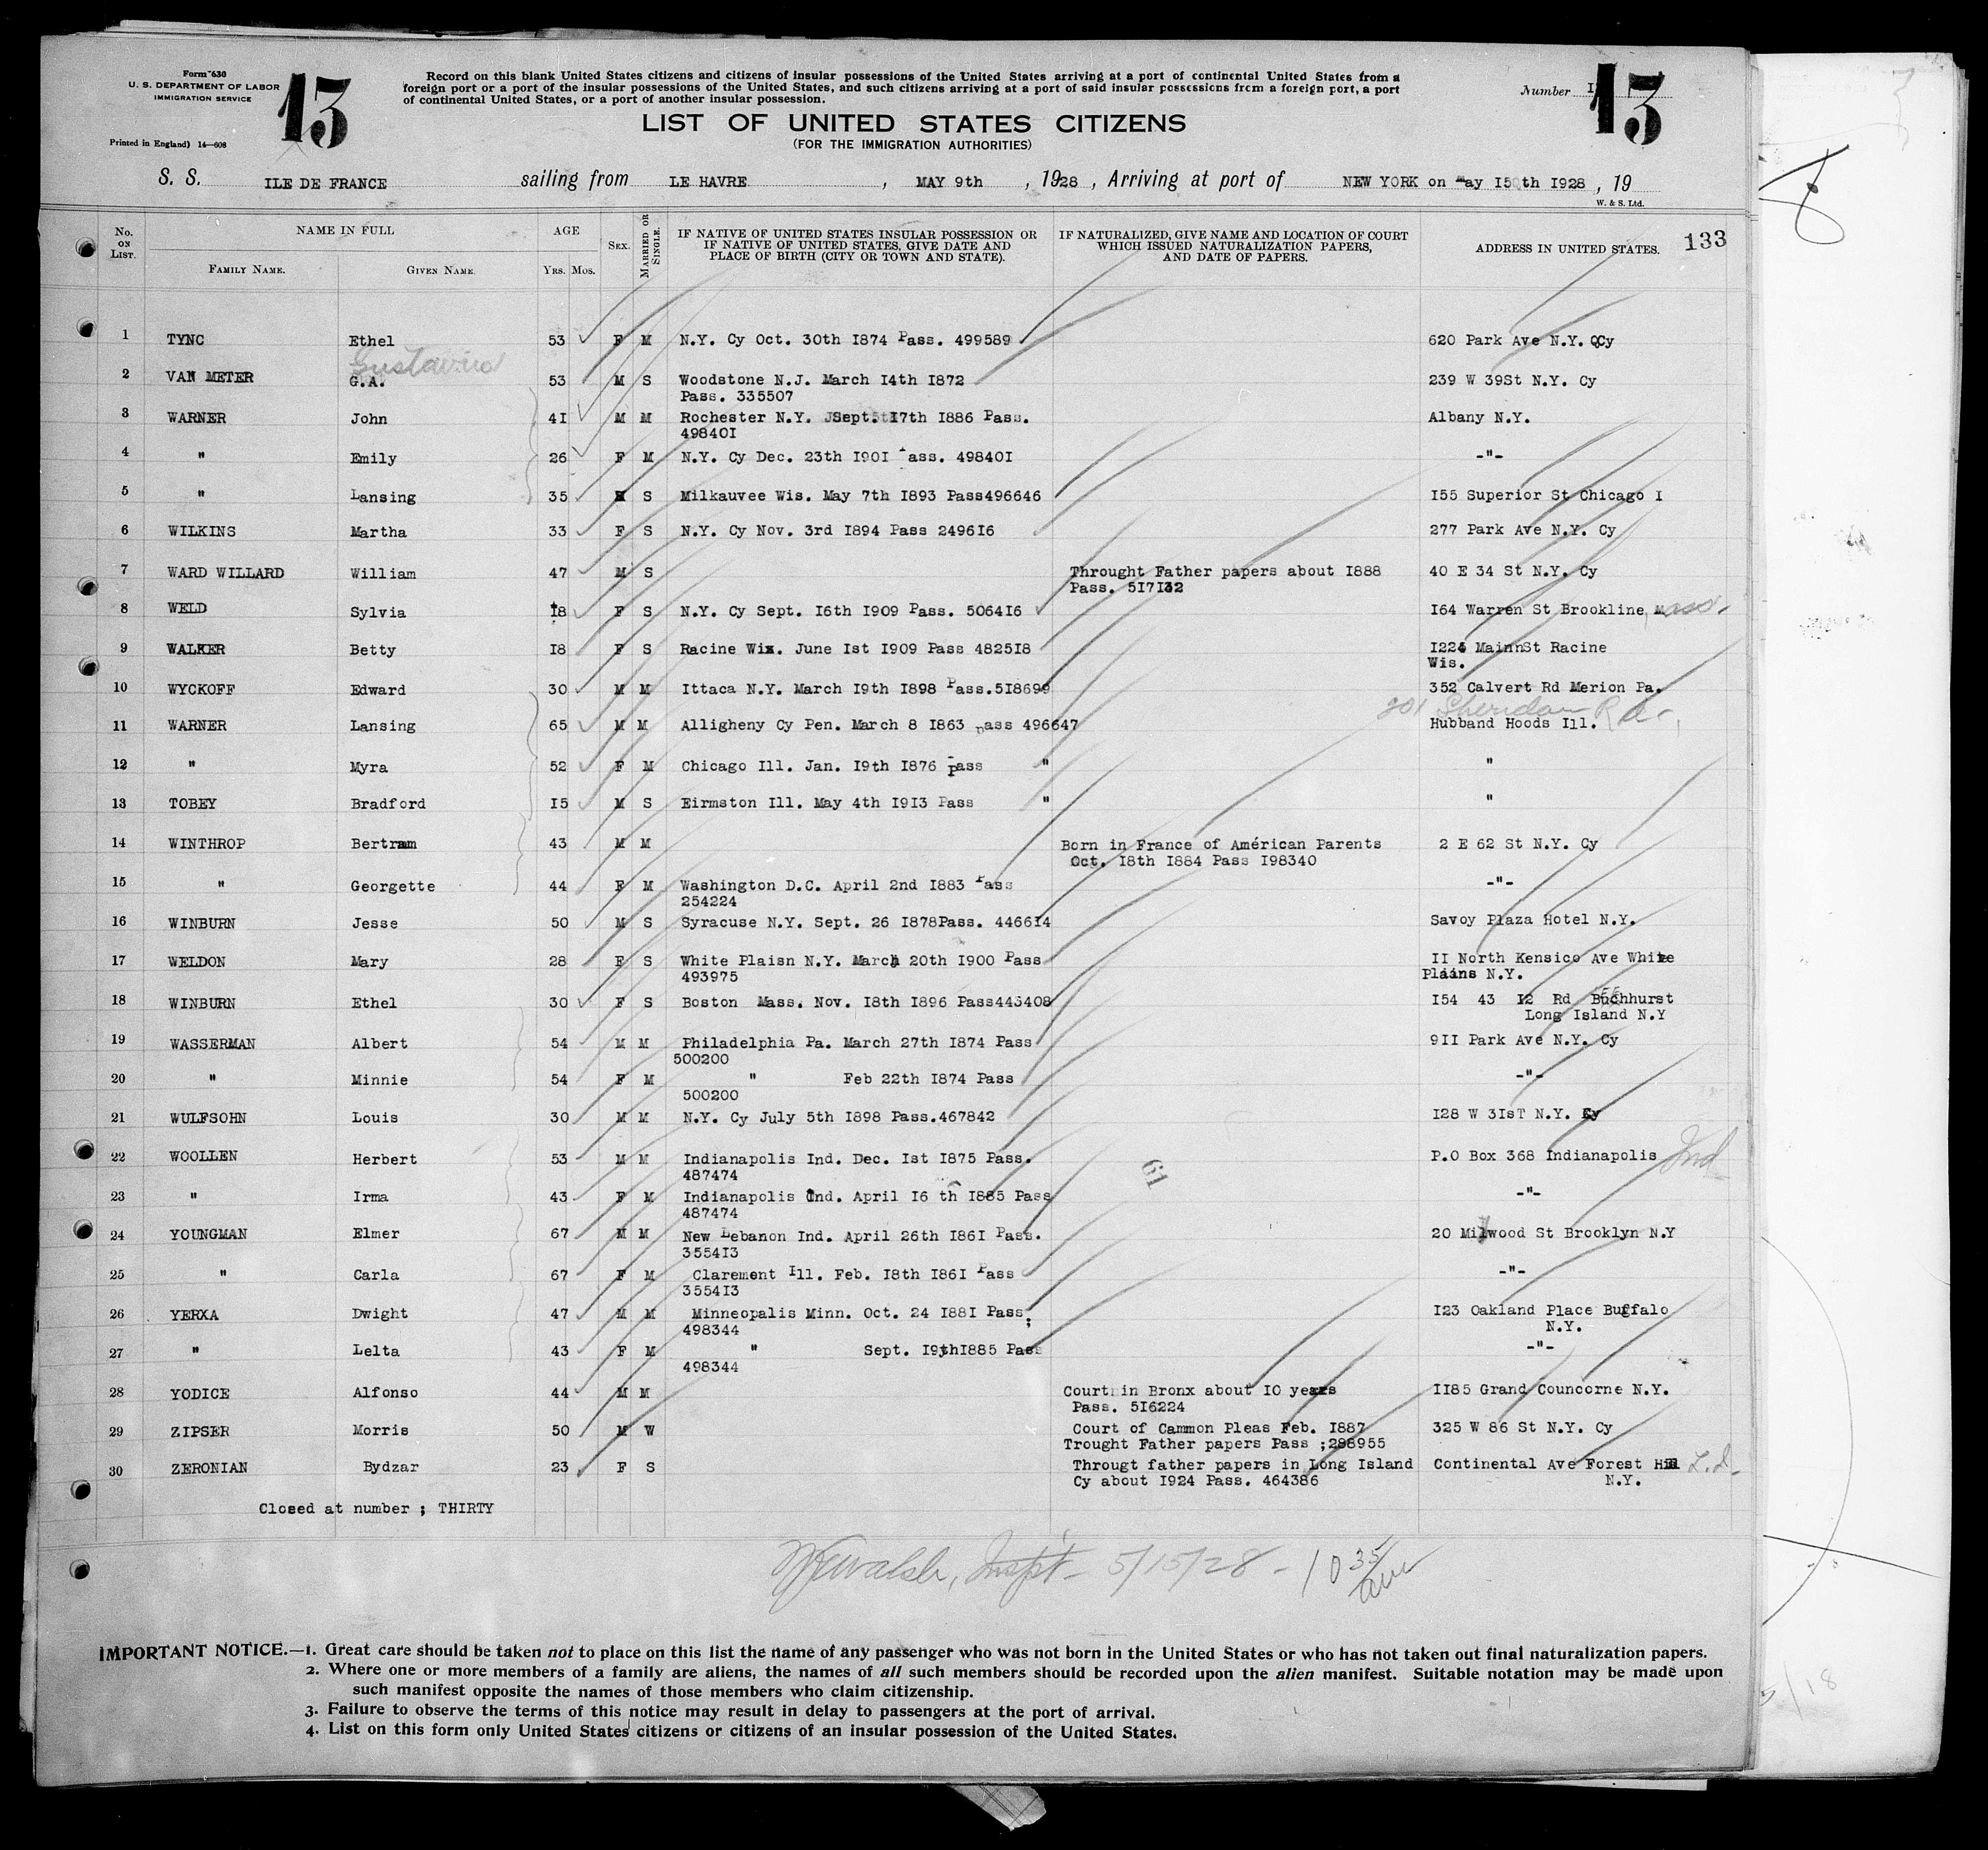 Form 630
U. S. DEPARTMENT OF LABOR
IMMIGRATION SERVICE
Printed in England) 14—608
13
Record on this blank United States citizens and citizens of insular possessions of the United States arriving at a port of continental United States from a
foreign port or a port of the insular possessions of the United States, and such citizens arriving at a port of said insular possessions from a foreign port, a port
of continental United States, or a port of another insular possession.
Number 13
LIST OF UNITED STATES CITIZENS
(FOR THE IMMIGRATION AUTHORITIES)
S. S. ILE DE FRANCE sailing from LE HAVRE, MAY 9th, 1928, Arriving at port of NEW YORK on May I5th I928, 19
W. & S. Ltd.
No. ON LIST. NAME IN FULL FAMILY NAME. GIVEN NAME. AGE YRS. MOS. SEX. MARRIED OR SINGLE. IF NATIVE OF UNITED STATES INSULAR POSSESSION OR IF NATIVE OF UNITED STATES, GIVE DATE AND PLACE OF BIRTH (CITY OR TOWN AND STATE). IF NATURALIZED, GIVE NAME AND LOCATION OF COURT WHICH ISSUED NATURALIZATION PAPERS, AND DATE OF PAPERS. ADDRESS IN UNITED STATES. 133
1 TYNC Ethel 53 F M N.Y. Cy Oct. 30th I874 Pass. 499589 620 Park Ave N.Y. Cy
2 VAN METER G.A. 53 M S Woodstone N.J. March I4th I872 239 W 39St N.Y. Cy
Pass. 335507
3 WARNER John 4I M M Rochester N.Y. Sept. I7th I886 Pass. Albany N.Y.
49840I
4 " Emily 26 F M N.Y. Cy Dec. 23th I90I Pass. 49840I -"-
5 " Lansing 35 M S Milkauvee Wis. May 7th I893 Pass496646 I55 Superior St Chicago I
6 WILKINS Martha 33 F S N.Y. Cy Nov. 3rd I894 Pass 2496I6 277 Park Ave N.Y. Cy
7 WARD WILLARD William 47 M S Throught Father papers about I888 40 E 34 St N.Y. Cy
Pass. 5I7I32
8 WELD Sylvia I8 F S N.Y. Cy Sept. I6th I909 Pass. 5064I6 I64 Warren St Brookline, Mass.
9 WALKER Betty I8 F S Racine Wis. June Ist I909 Pass 4825I8 I224 MainnSt Racine
Wis.
10 WYCKOFF Edward 30 M M Ittaca N.Y. March I9th I898 Pass.5I8699 352 Calvert Rd Merion Pa.
201 Sheridan Rd.
11 WARNER Lansing 65 M M Alligheny Cy Pen. March 8 I863 pass 496647 Hubband Hoods Ill.
12 " Myra 52 F M Chicago Ill. Jan. I9th I876 pass " "
13 TOBEY Bradford I5 M S Eirmston Ill. May 4th I9I3 Pass " "
14 WINTHROP Bertram 43 M M Born in France of Américan Parents 2 E 62 St N.Y. Cy
Oct. I8th I884 Pass I98340
15 " Georgette 44 F M Washington D.C. April 2nd I883 Pass -"-
254224
16 WINBURN Jesse 50 M S Syracuse N.Y. Sept. 26 I878Pass. 4466I4 Savoy Plaza Hotel N.Y.
17 WELDON Mary 28 F S White Plaisn N.Y. March 20th I900 Pass II North Kensico Ave White
493975 Plains N.Y.
18 WINBURN Ethel 30 F S Boston Mass. Nov. I8th I896 Pass443408 I54 43 I2 Rd Bechhurst
Long Island N.Y
19 WASSERMAN Albert 54 M M Philadelphia Pa. March 27th I874 Pass 9II Park Ave N.Y. Cy
500200
20 " Minnie 54 F M " Feb 22th I874 Pass -"-
500200
21 WULFSOHN Louis 30 M M N.Y. Cy July 5th I898 Pass.467842 I28 W 3IsT N.Y. Cy
22 WOOLLEN Herbert 53 M M Indianapolis Ind. Dec. Ist I875 Pass. P.O Box 368 Indianapolis Ind
487474
23 " Irma 43 F M Indianapolis Ind. April I6 th I885 Pass -"-
487474
61
24 YOUNGMAN Elmer 67 M M New Lebanon Ind. April 26th I86I Pass. 20 Milwood St Brooklyn N.Y
3554I3
25 " Carla 67 F M Clarement Ill. Feb. I8th I86I Pass -"-
3554I3
26 YERXA Dwight 47 M M Minneopalis Minn. Oct. 24 I88I Pass. I23 Oakland Place Buffalo
498344 N.Y.
27 " Lelta 43 F M " Sept. I9thI885 Pass -"-
498344
28 YODICE Alfonso 44 M M Court in Bronx about I0 years II85 Grand Councorne N.Y.
Pass. 5I6224
29 ZIPSER Morris 50 M W Court of Cammon Pleas Feb. I887 325 W 86 St N.Y. Cy
Trought Father papers Pass ;288955
30 ZERONIAN Bydzar 23 F S Througt father papers in Long Island Continental Ave Forest Hill L.I.
Cy about I924 Pass. 464386 N.Y.
Closed at number ; THIRTY
Walsh, Inspt - 5/15/28 - 10 35/am
IMPORTANT NOTICE.—1. Great care should be taken not to place on this list the name of any passenger who was not born in the United States or who has not taken out final naturalization papers.
2. Where one or more members of a family are aliens, the names of all such members should be recorded upon the alien manifest. Suitable notation may be made upon
such manifest opposite the names of those members who claim citizenship.
3. Failure to observe the terms of this notice may result in delay to passengers at the port of arrival.
4. List on this form only United States citizens or citizens of an insular possession of the United States.